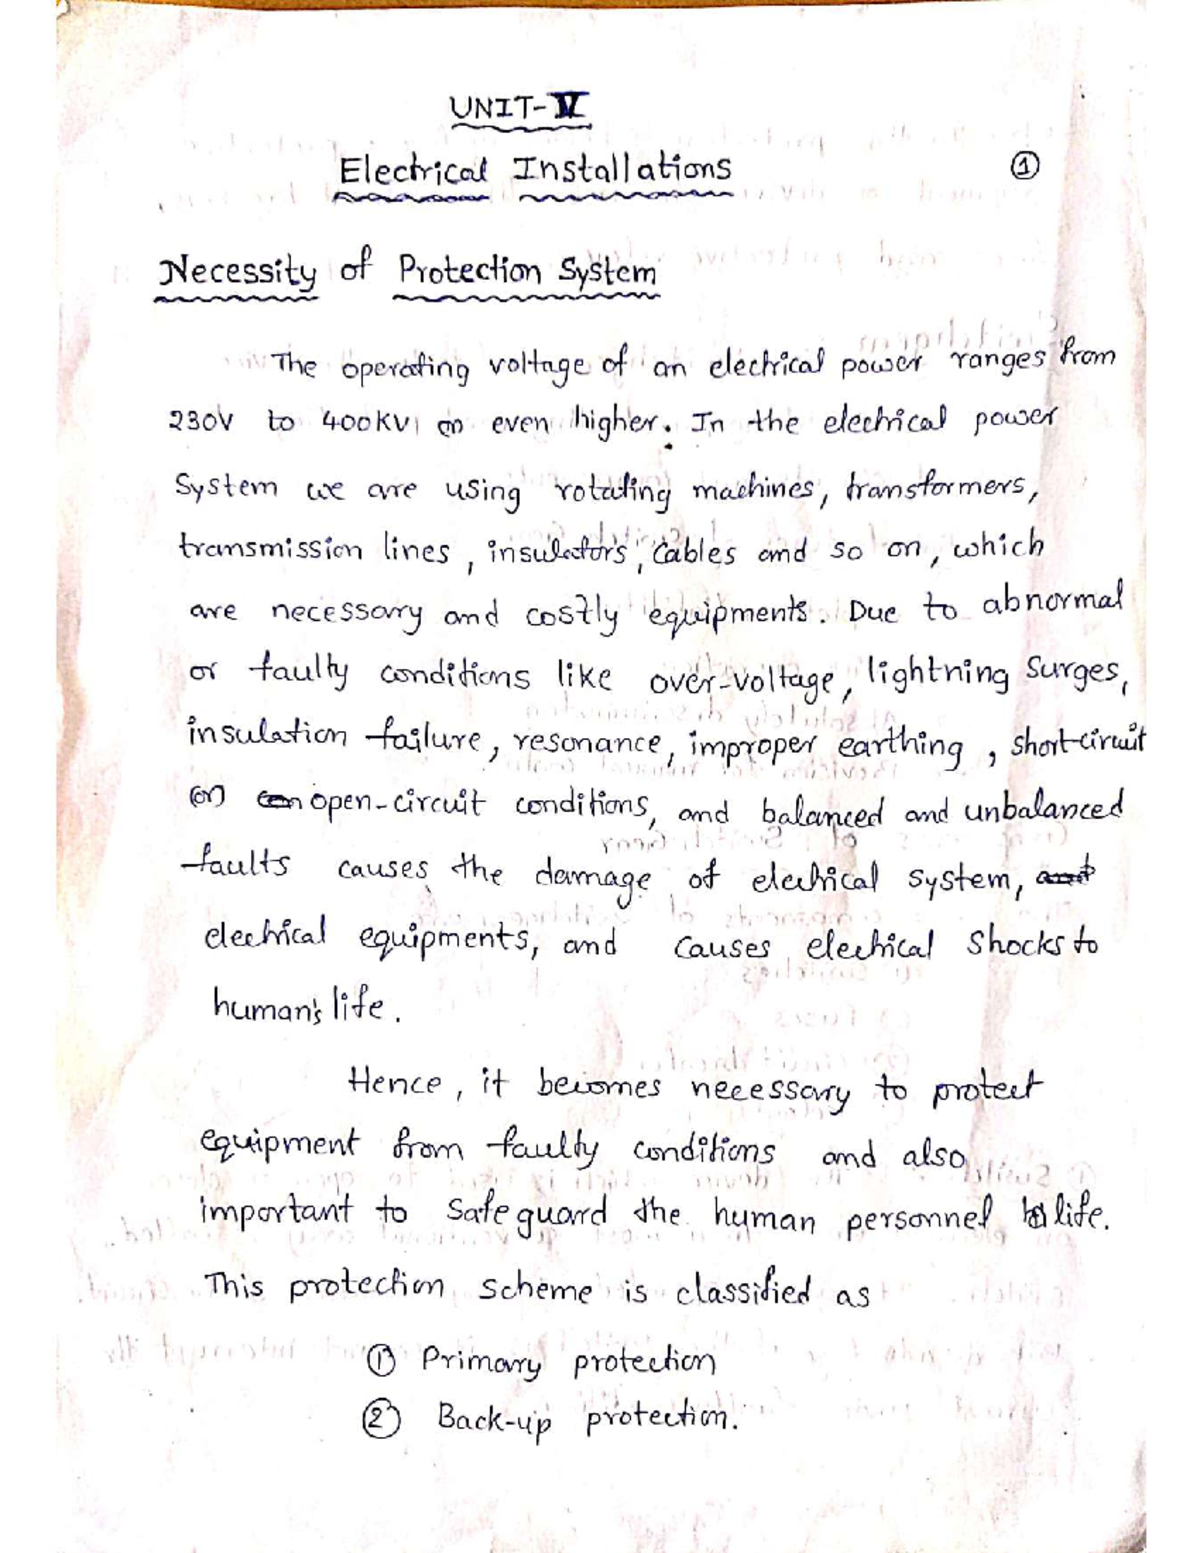 UNIT-V
Electrical Installations
1
Necessity of Protection System
The operating voltage of an electrical power ranges from
230V to 400KV (or) even higher. In the electrical power
System we are using rotating machines, transformers,
transmission lines, insulators, Cables and so on, which
are necessary and costly equipments. Due to abnormal
or faulty conditions like over-voltage, lightning Surges,
insulation failure, resonance, improper earthing, short-circuit
(or) open-circuit conditions, and balanced and unbalanced
faults causes the damage of electrical system,
electrical equipments, and causes electrical Shocks to
human's life.
Hence, it becomes necessary to protect
equipment from faulty conditions and also
important to Safe guard the human personnel life.
This protection scheme is classified as
1 Primary protection
2 Back-up protection.